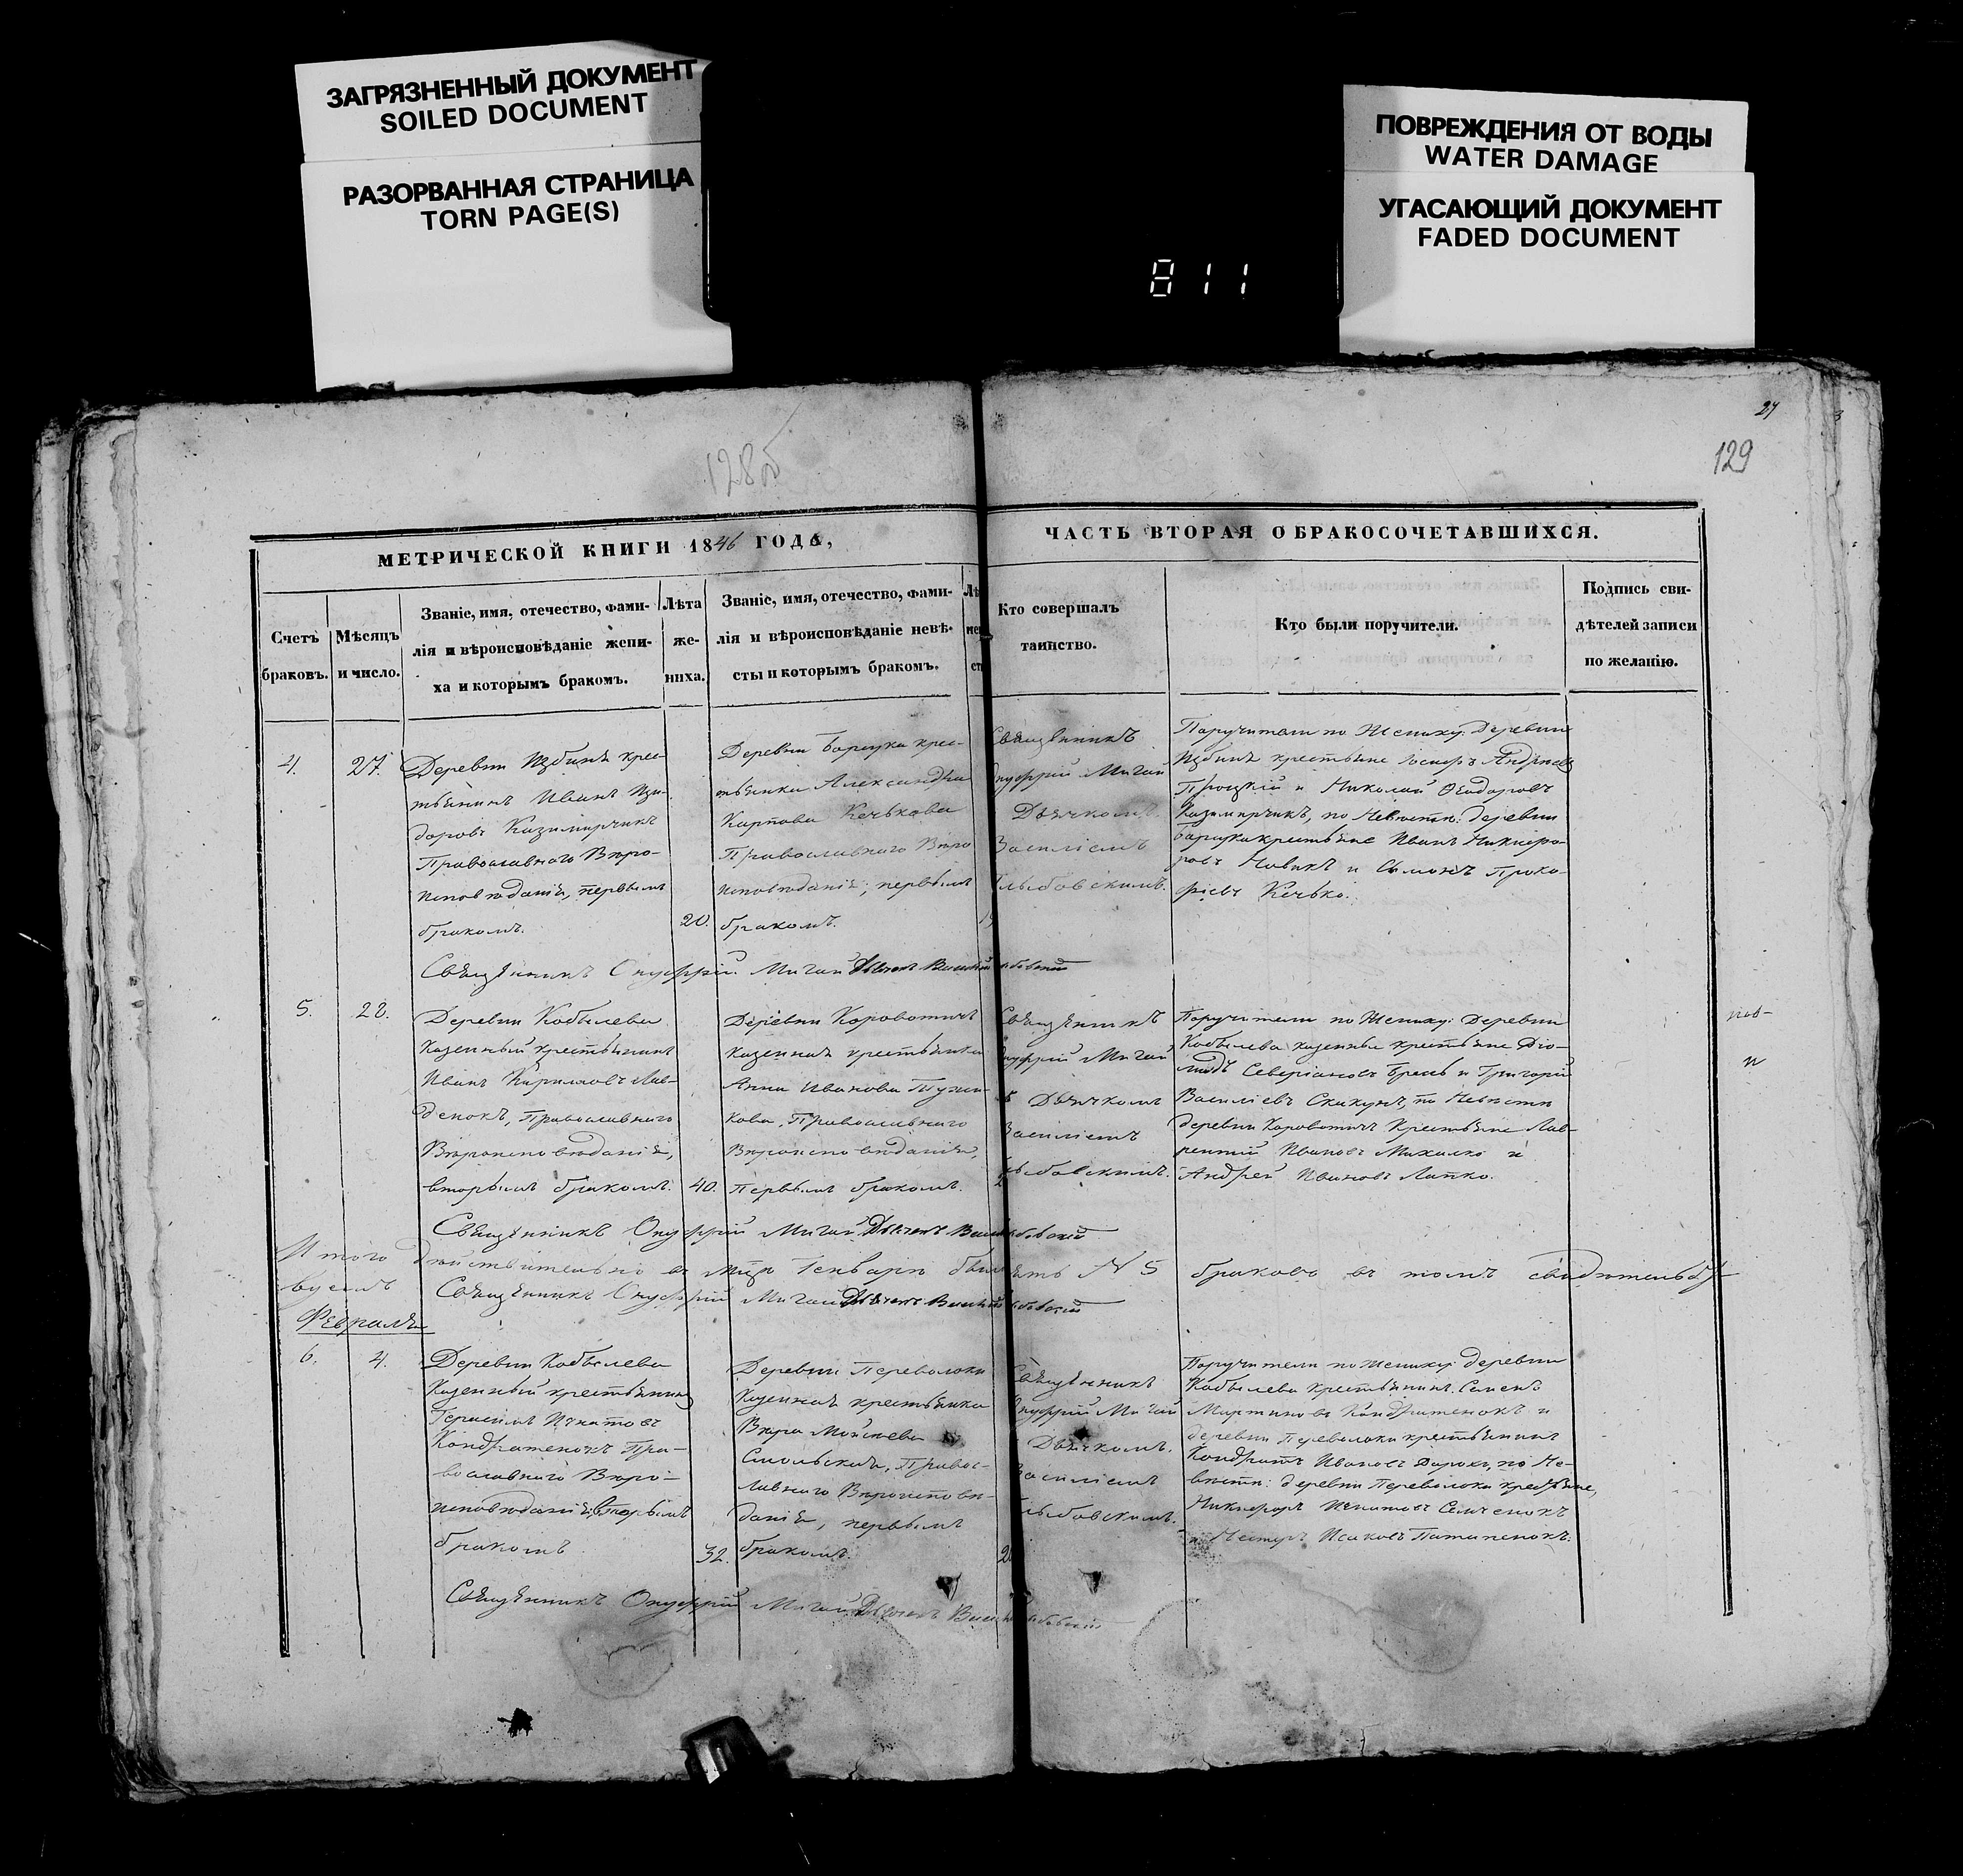 ЗАГРЯЗНЕННЫЙ ДОКУМЕНТ
SOILED DOCUMENT
РАЗОРВАННАЯ СТРАНИЦА
TORN PAGE(S)
ПОВРЕЖДЕНИЯ ОТ ВОДЫ
WATER DAMAGE
УГАСАЮЩИЙ ДОКУМЕНТ
FADED DOCUMENT
811
27
129
128об
МЕТРИЧЕСКОЙ КНИГИ 1846 ГОДА,
ЧАСТЬ ВТОРАЯ О БРАКОСОЧЕТАВШИХСЯ.
Счетъ
браковъ.
Мѣсяцъ
и число.
Званіе, имя, отечество, фами-
лія и вѣроисповѣданіе жени-
ха и которымъ бракомъ.
Лѣта
же-
ниха.
Званіе, имя, отечество, фами-
лія и вѣроисповѣданіе невѣ-
сты и которымъ бракомъ.
Кто совершалъ
таинство.
Кто были поручители.
Подпись сви-
дѣтелей записи
по желанію.
4.
27.
Деревни Избинъ крес-
тьянинъ Иванъ Изи-
доровъ Казимирчикъ
Православнаго Вѣро-
исповѣданія, первымъ
бракомъ.
20.
Деревни Барсуки крес-
тьянка Александра
Карпова Кечькова
Православнаго Вѣро
исповѣданія, первымъ
бракомъ.
Священникъ
Онуфрій Мигай
Дьячкомъ
Василіемъ
Глыбовскимъ.
Поручители по Жениху: Деревни
Избинъ крестьяне Іосифъ Андреевъ
Троцкій и Николай Ѳеодоровъ
Казимирчикъ, по Невѣстѣ: деревни
Барсуки крестьяне Иванъ Никифо-
ровъ Новикъ и Сымонъ Проко-
фіевъ Кечько.
Священникъ Онуфрій Мигай Дьячекъ Василій Глыбовскій
5.
28.
Деревни Кобылева
Казенный крестьянинъ
Иванъ Кириловъ Лав-
денокъ, Православнаго
Вѣроисповѣданія,
вторымъ бракомъ.
40.
Деревни Коровотичъ
казенная крестьянка
Анна Иванова
Православнаго
Вѣроисповѣданія,
Первымъ бракомъ.
Священникъ
Онуфрій Мигай
Дьячкомъ
Василіемъ
Глыбовскимъ.
Поручители по Жениху: Деревни
Кобылева казенные крестьяне Дю-
мидъ Северіановъ Брель и Григорій
Василіевъ Скакунъ, по Невѣстѣ
деревни Коровотичъ Крестьяне Лав-
рентій Ивановъ Михалко и
Андрей Ивановъ Лапко.
Священникъ Онуфрій Мигай Дьячекъ Василій Глыбовскій
Итого дѣйствительно въ Генварѣ N 5 браковъ въ томъ свидѣтельст-
вуемъ
Священникъ Онуфрій Мигай Дьячекъ Василій Глыбовскій
Февраль
6.
4.
Деревни Кобылева
Казенный крестьянинъ
Герасимъ Игнатовъ
Кондратенокъ Пра-
вославнаго Вѣро-
исповѣданія, вторымъ
бракомъ
32.
Деревни Переволоки
Казенная крестьянка
Вѣра Мойсѣева
Смольская, Правос-
лавнаго Вѣроисповѣ-
данія, первымъ
бракомъ.
Священникъ
Онуфрій Мигай
Дьячкомъ
Василіемъ
Глыбовскимъ.
Поручители по Жениху: деревни
Кобылева крестьянинъ Семенъ
Мартиновъ Кондратенокъ и
деревни Переволоки крестьянинъ
Кондратъ Ивановъ по Не-
вѣстѣ: деревни Переволоки крестьяне,
Никифоръ Игнатовъ Семченокъ
и Несторъ Исаковъ Потапенокъ.
Священникъ Онуфрій Мигай Дьячекъ Василій Глыбовскій